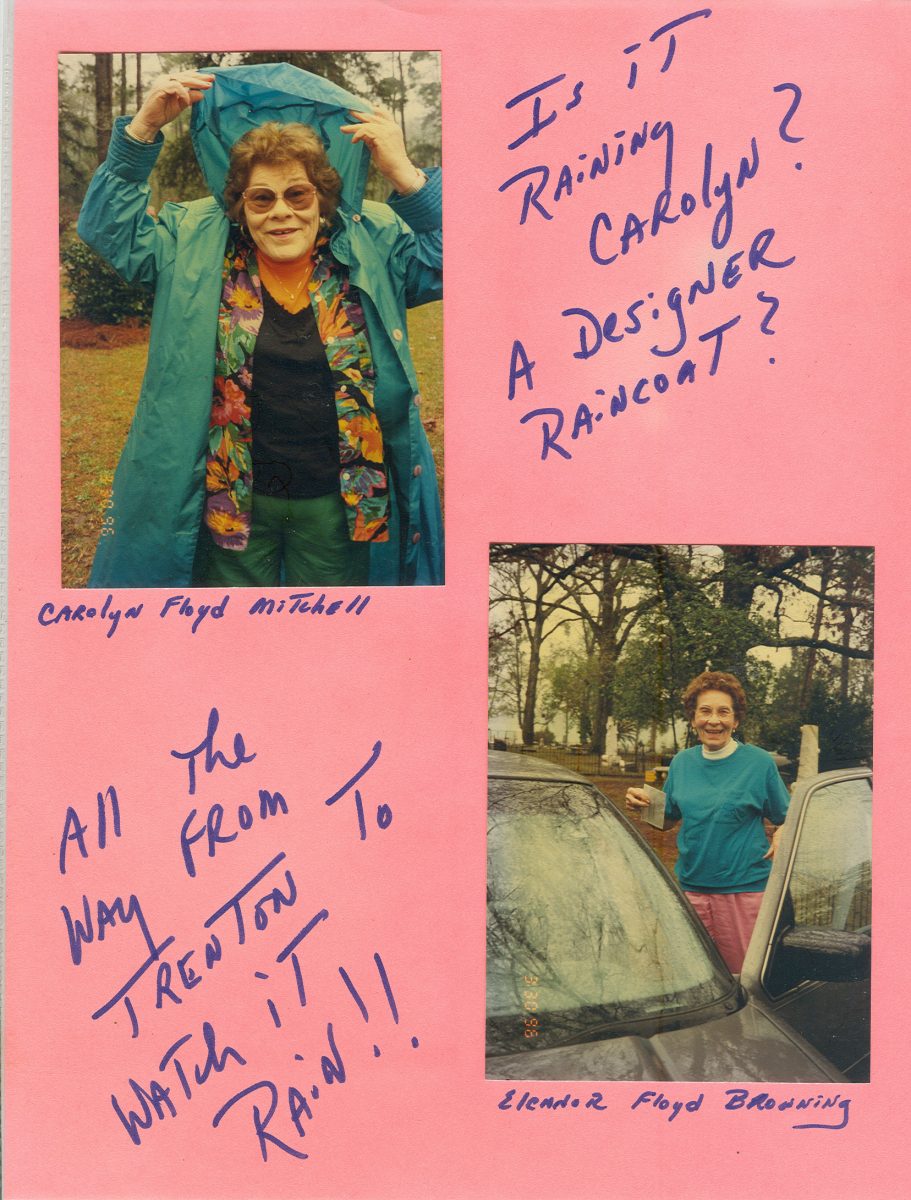 Is iT
RAiNiNg
CARolyN?
A DesigNER
RAiNCOAT?
CARolyN Floyd MiTchell
All The
WAy FROM
TRENTON To
WATch iT
RAiN!!
EleANoR Floyd BROWNiNg